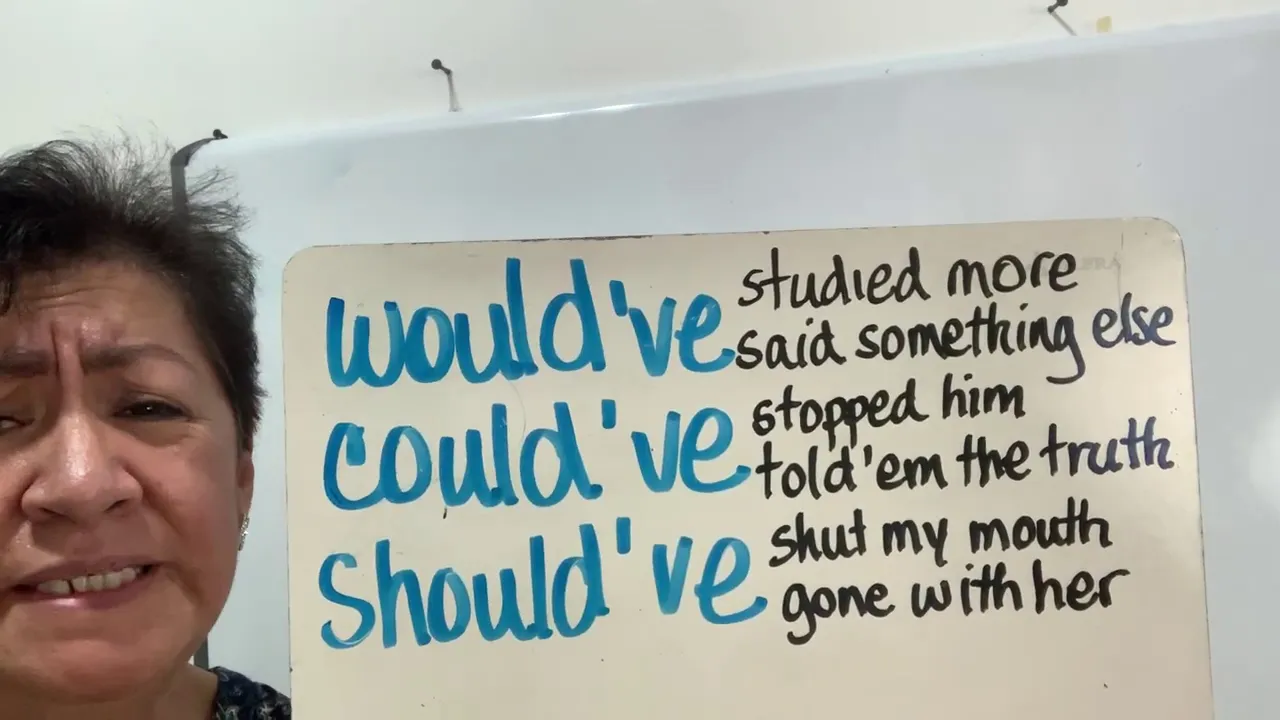 would've studied more
said something else
could've stopped him
told 'em the truth
should've shut my mouth
gone with her